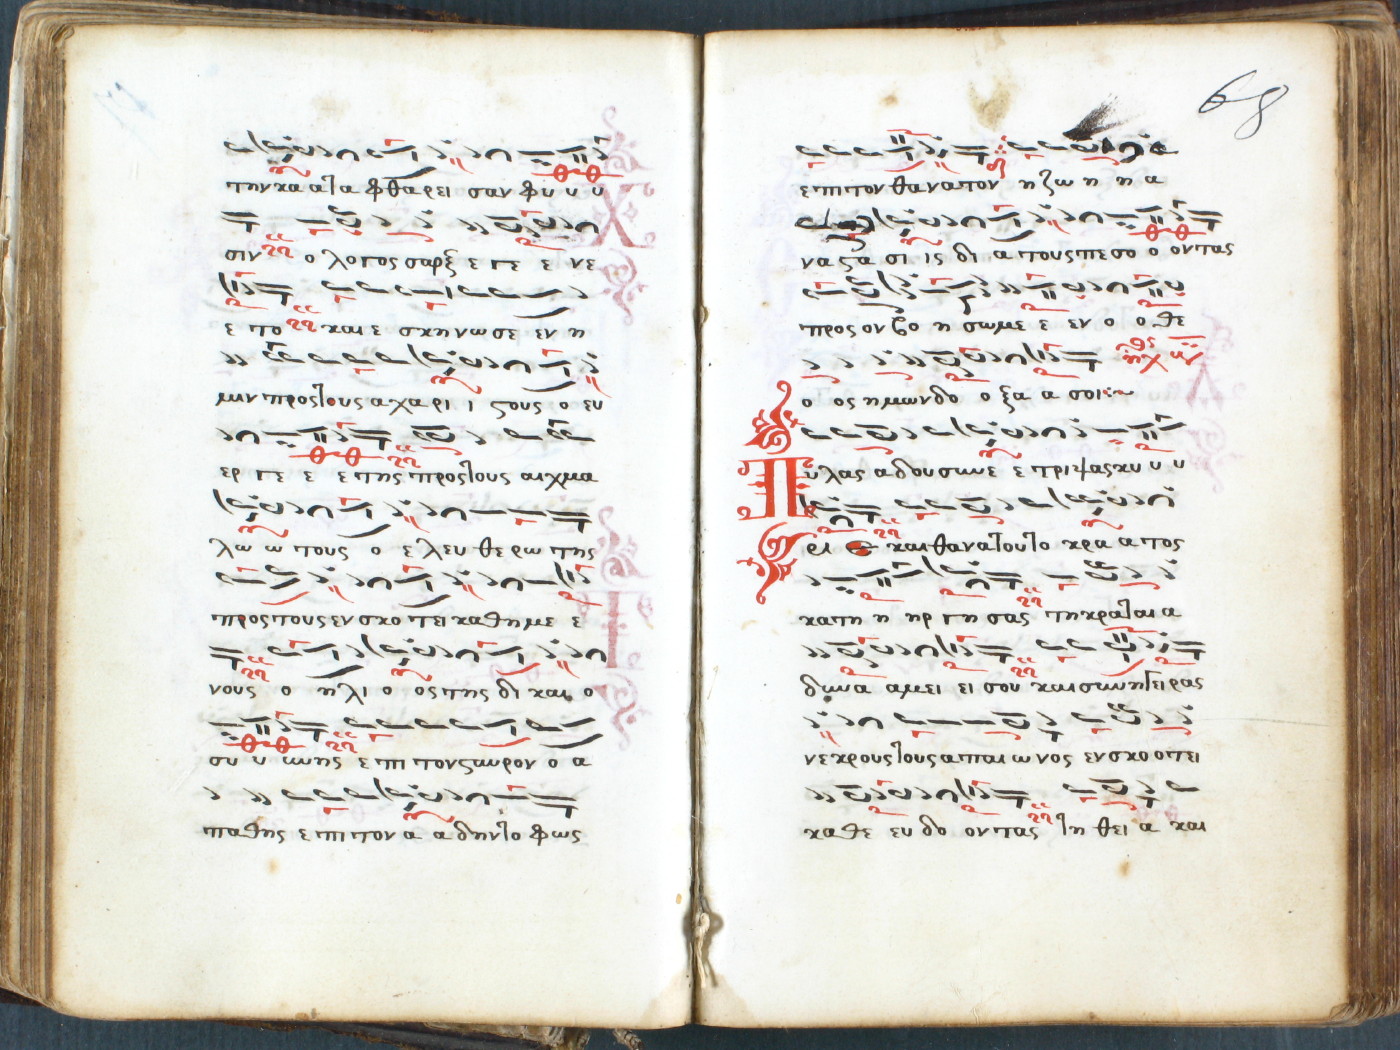 την κα α ϊα φθα ρει σαν φυ υ υ
σιν ο λο γος σαρξ ε γε ε νε
ε το και ε σκη νω σε εν η
μιν προς τους α χα ρι ι στους ο ευ
ερ γε ε ε της προς τους αιχμα
λω ω τους ο ε λευ θε ρω της
προς τους εν σκο τει κα θη με ε
νους ο η λι ο ος της δι και ο
συ υ υνης ε πι τον σταυρον ο α
πα θης ε πι τον α α δην το φως
68
ε πι τον θα να τον η ζω η η α
να στα σι ις δι α τους πε σο ο οντας
προς ον βο η σωμε ε εν ο ο θε
ο ος ημων δο ο ξα α σοι
Πυλας αδου συνε ε τριψας κυ υ υ
ρι ε και θανατου το κρα α τος
κατη η ηρ γη σας τη κραται α
δυνα αμει ει σου και συνηγει ρας
νεκρους τους απαι ω νος εν σκο ο τει
καθε ευ δο οντας τη θει α και